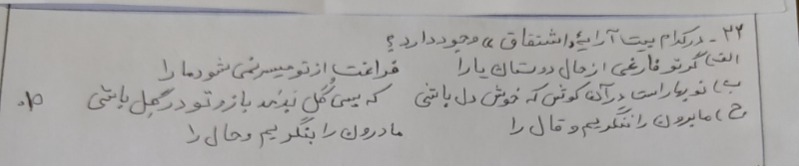 ۲۲- در کدام بیت آرایهٔ «اشتقاق» وجود دارد؟
الف) گر تو فارغی از حال دوستان یارا فراغت از تو میسر نمی شود ما را
ب) نوبهار است در آن کوش که خوش دل باشی که بسی گُل بدمد باز و تو در گِل باشی ۰/۵
ج) ما برون را ننگریم و قال را ما درون را بنگریم و حال را